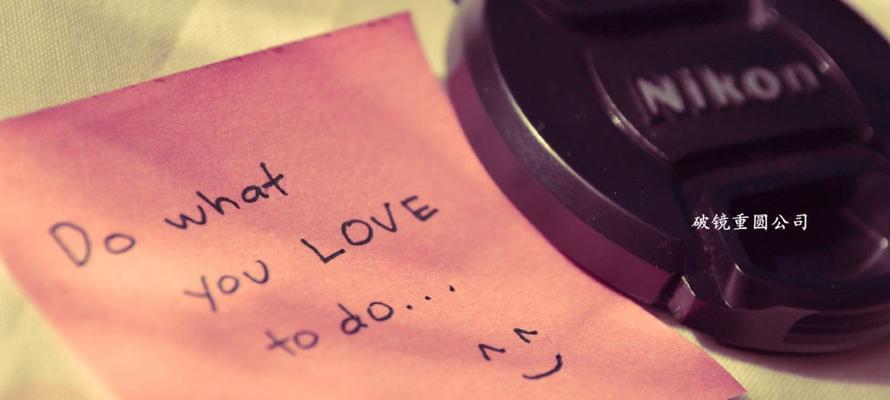 Do what
you LOVE
to do...
Nikon
破镜重圆公司